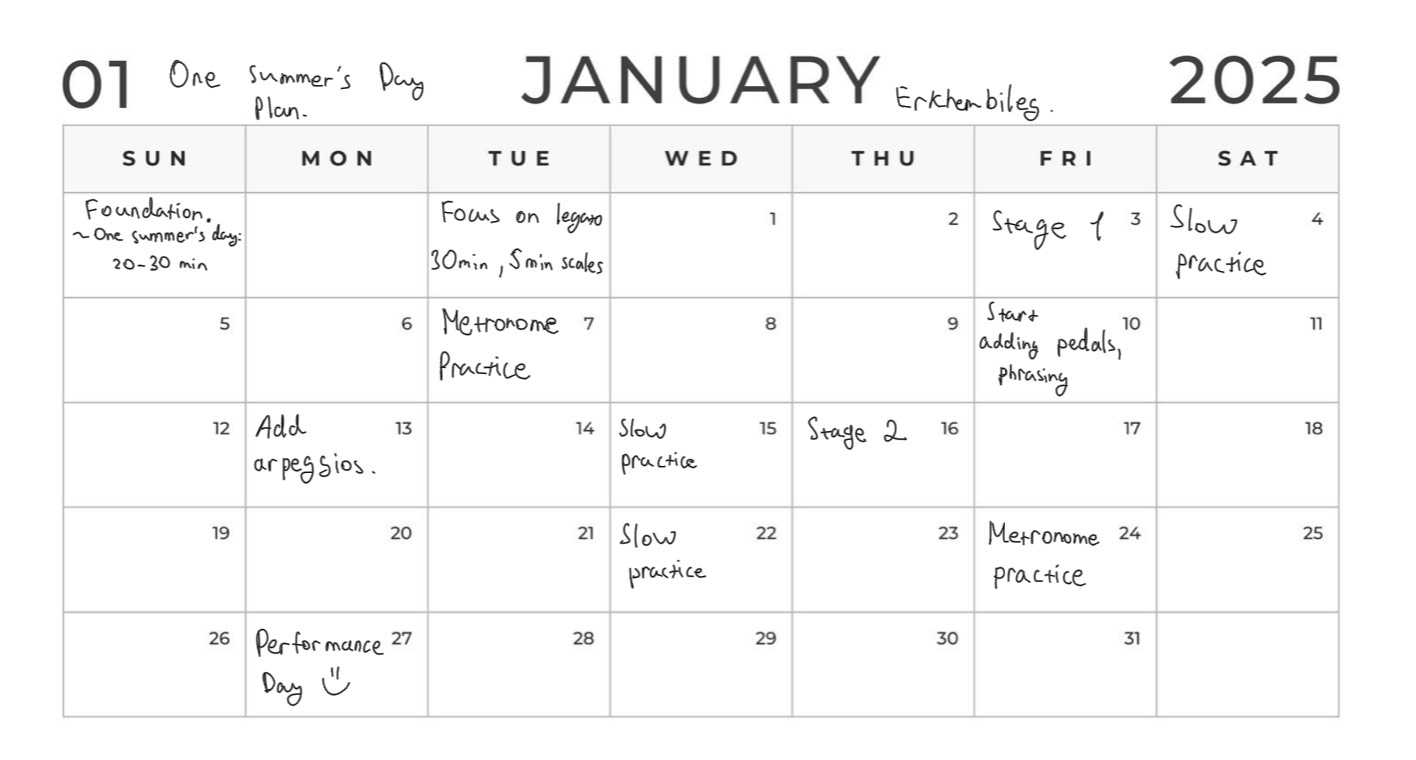 01 One summer's Day JANUARY Erkhembileg. 2025
Plan.
SUN MON TUE WED THU FRI SAT
Foundation.
~ One summer's day:
20-30 min
Focus on legato
30min, 5min scales
1
2
Stage 1 3
Slow 4
practice
5
6
Metronome 7
Practice
8
9
Start
10
adding pedals,
phrasing
11
12
Add 13
arpeggios.
14
Slow 15
practice
Stage 2 16
17
18
19
20
21
Slow 22
practice
23
Metronome 24
practice
25
26
Performance 27
Day
28
29
30
31